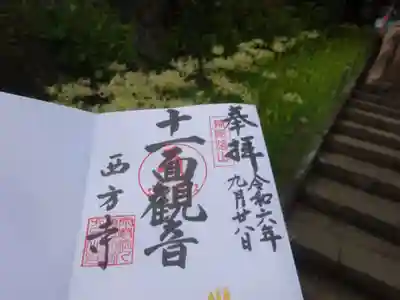 奉拝
令和六年
九月廿八日
十一面観音
西方寺